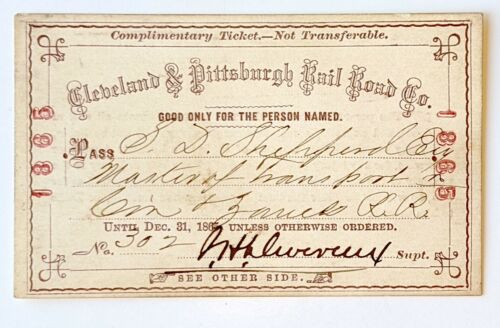 Complimentary Ticket.—Not Transferable.
Cleveland & Pittsburgh Rail Road Co.
GOOD ONLY FOR THE PERSON NAMED.
1865
1865
PASS S. D. Shipperd Esq
Master of Transport n
R.R.
UNTIL DEC. 31, 1865, UNLESS OTHERWISE ORDERED.
No. 302
Supt.
SEE OTHER SIDE.